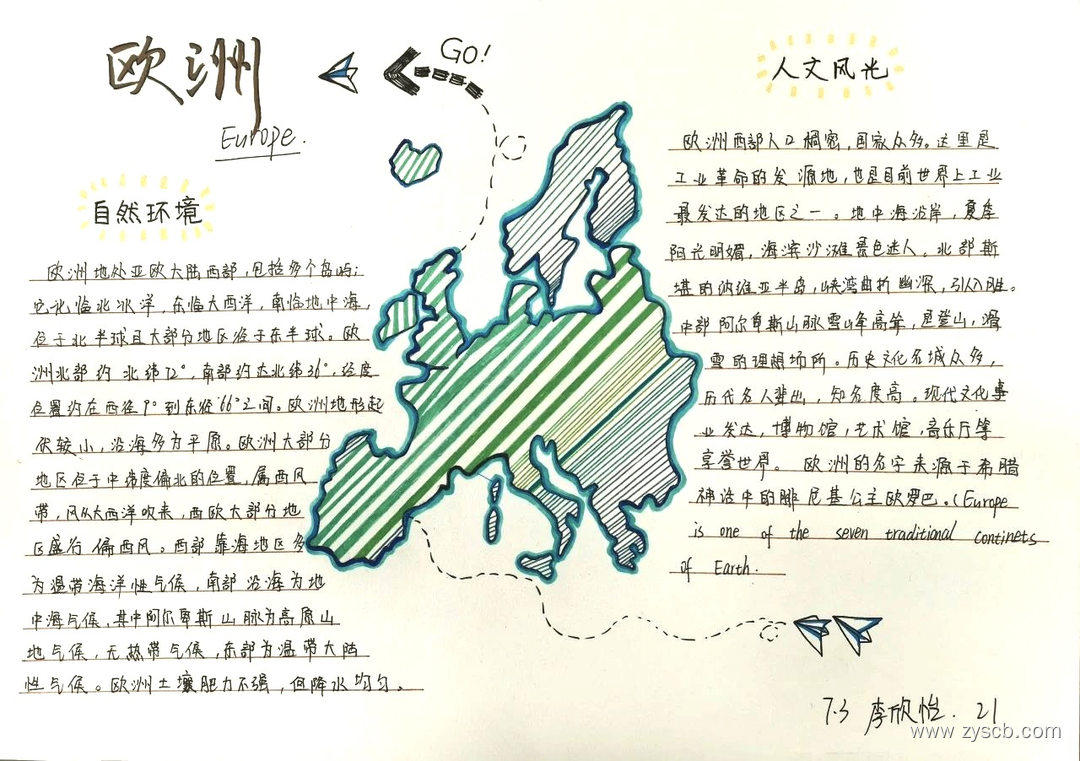 欧洲
Europe.
GO!
自然环境
欧洲地处亚欧大陆西部,包括多个岛屿;
它北临北冰洋,东临大西洋,南临地中海,
位于北半球且大部分地区位于东半球。欧
洲北部约北纬72°,南部约达北纬36°,经度
位置约在西径9°到东径66°之间。欧洲地形起
伏较小,沿海多为平原。欧洲大部分
地区位于中纬度偏北的位置,属西风
带,风从大西洋吹来,西欧大部分地
区盛行偏西风。西部靠海地区多
为温带海洋性气候,南部沿海为地
中海气候,其中阿尔卑斯山脉为高原山
地气候,无热带气候,东部为温带大陆
性气候。欧洲土壤肥力不强,但降水均匀。
人文风光
欧洲西部人口稠密,国家众多。这里是
工业革命的发源地,也是目前世界上工业
最发达的地区之一。地中海沿岸,夏季
阳光明媚,海滨沙滩景色迷人。北部斯
堪的纳维亚半岛,峡湾曲折幽深,引人入胜。
中部阿尔卑斯山脉雪峰高耸,是登山,滑
雪的理想场所。历史文化名城众多,
历代名人辈出,知名度高。现代文化事
业发达,博物馆,艺术馆,音乐厅等
享誉世界。欧洲的名字来源于希腊
神话中的腓尼基公主欧罗巴。(Europe
is one of the seven traditional continets
of Earth.
7.3 李欣怡. 21
www.zyscb.com